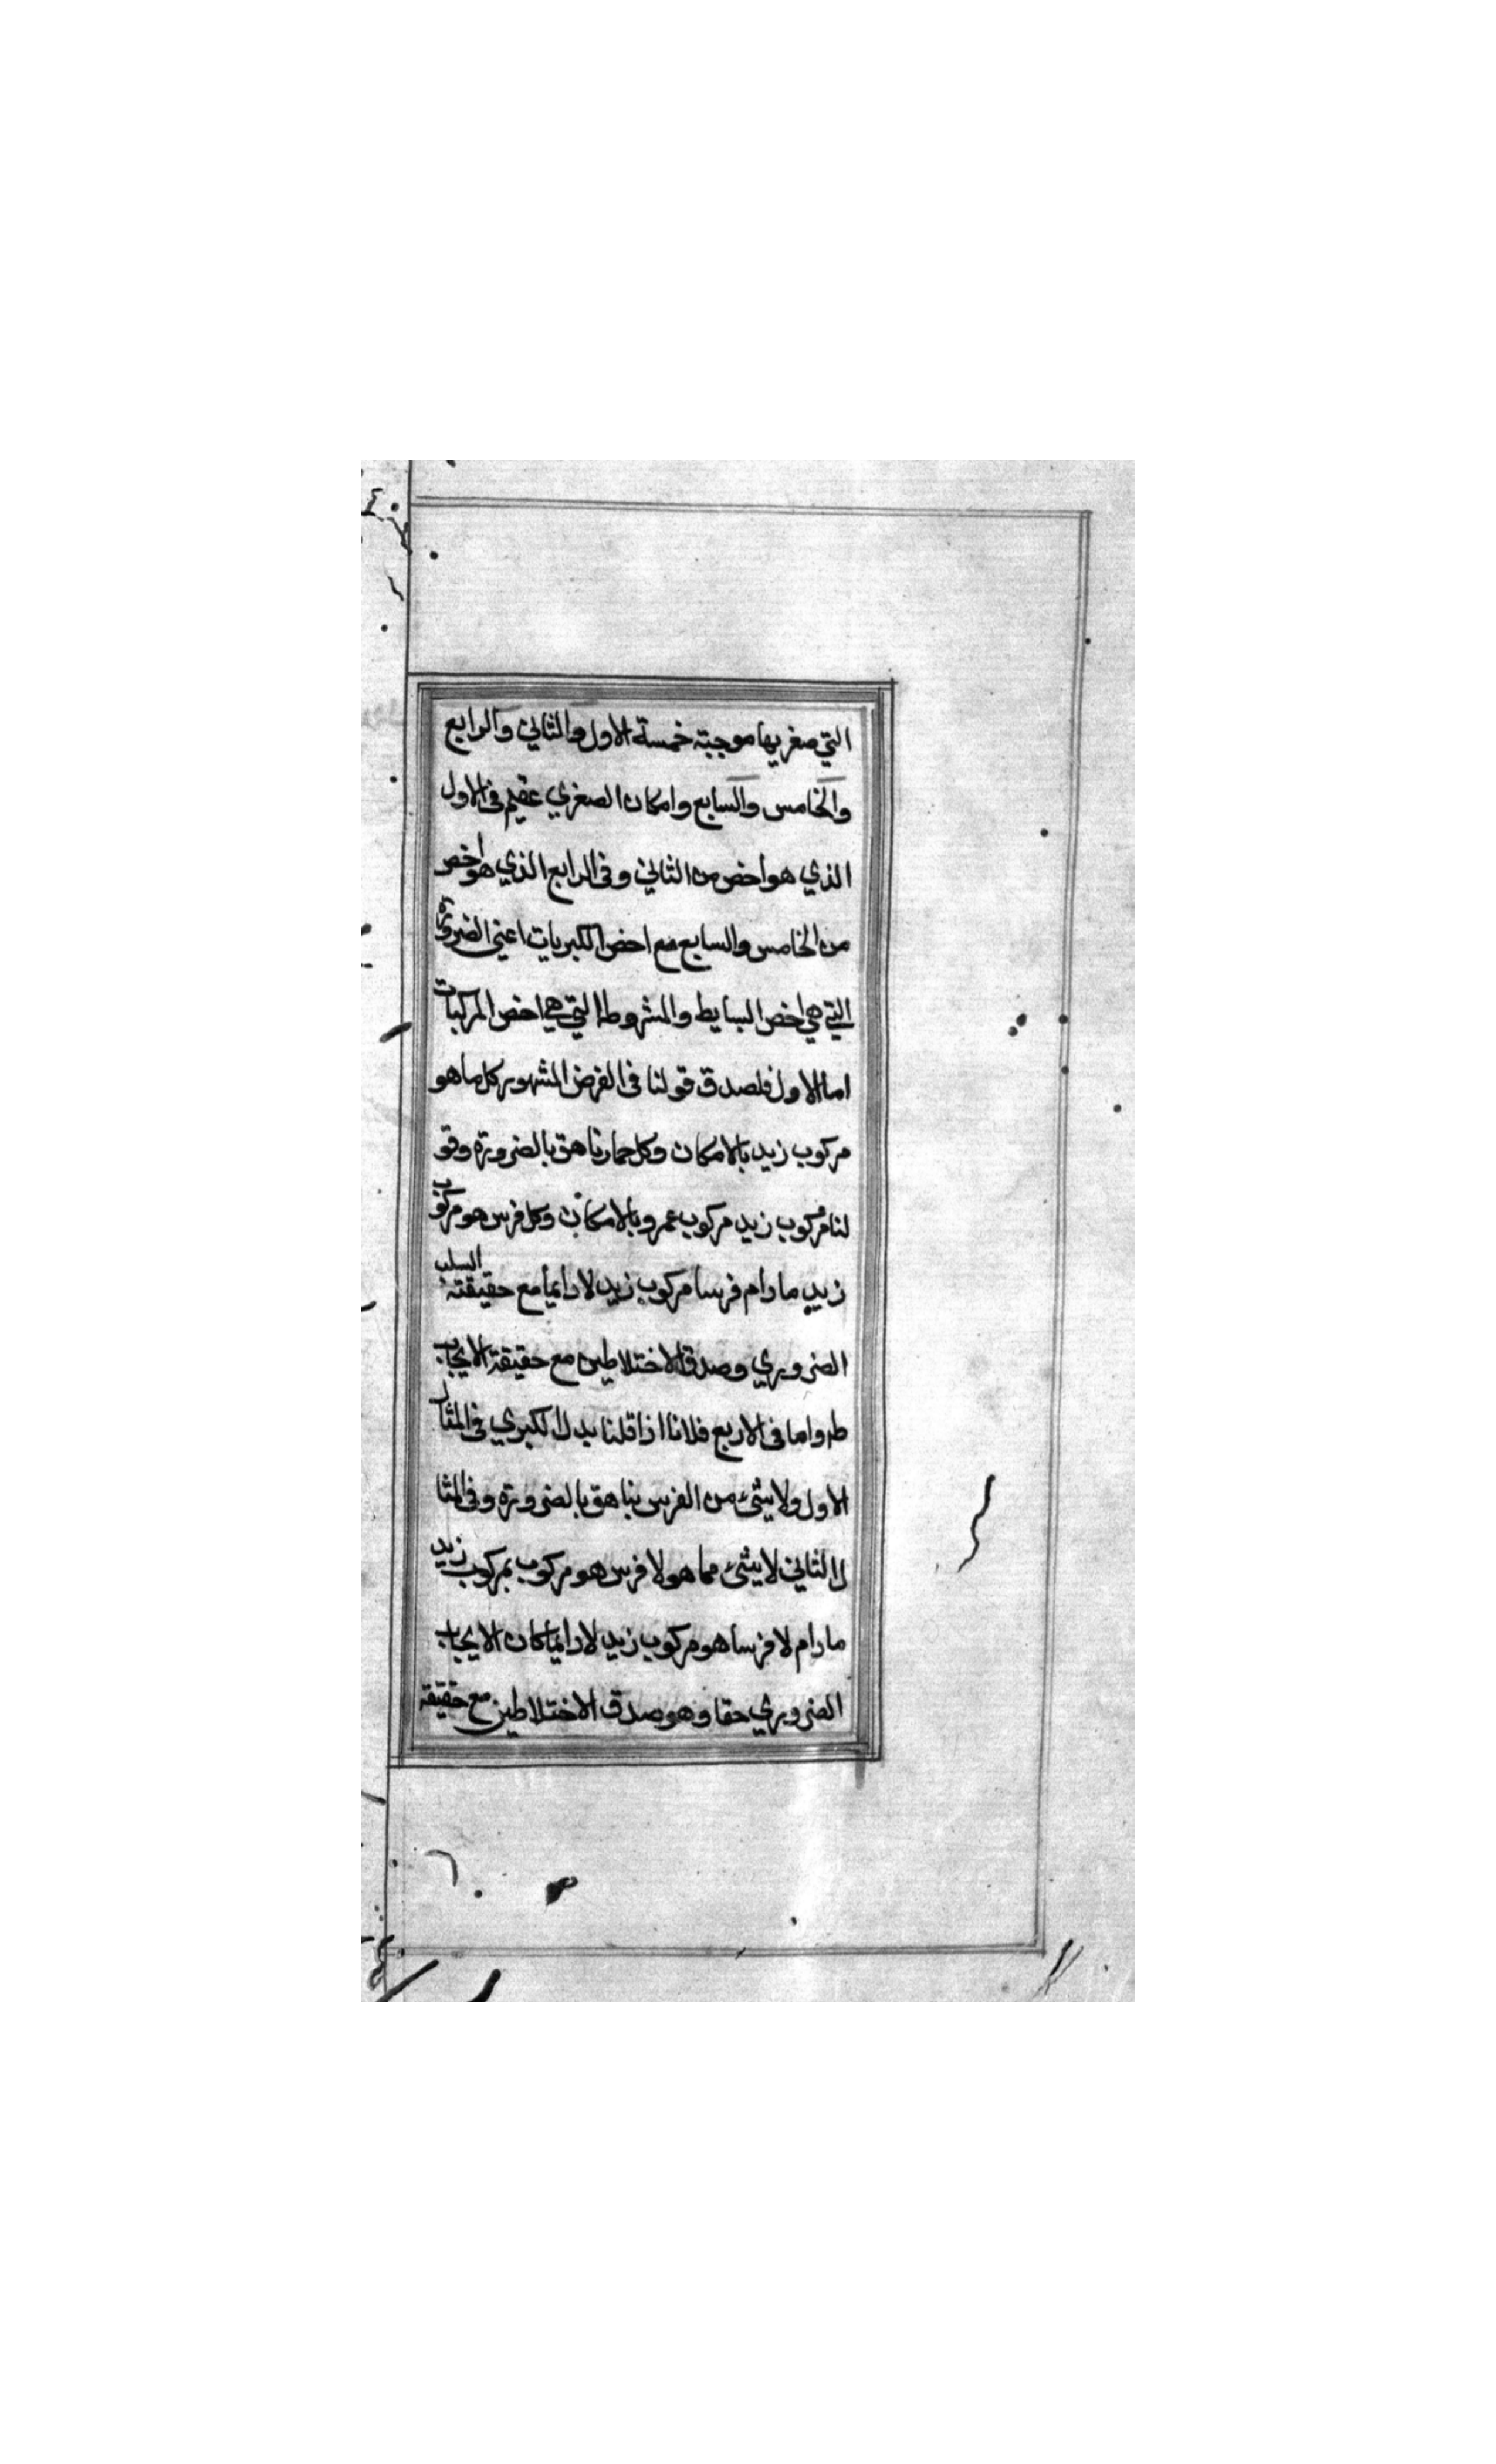 التي صغريها موجبته خمسة الاول والثاني والرابع
والخامس والسابع وامكان الصغري عقيم في الاول
الذي هو اخص من الثاني وفي الرابع الذي هو اخص
من الخامس والسابع مع اخص الكبريات اعني الضرورة
التي هي اخص البسايط والمشروطة التي هي اخص المركبات
اما الاول فلصدق قولنا في الفرض المشهور كل ما هو
مركوب زيد بالامكان وكل حمار ناهق بالضرورة وقو
لنا مركوب زيد مركوب عمرو بالامكان وكل فرس هو مركوب
زيد ما دام فرسا مركوب زيد لا دايما مع حقيقته السلب
الضروري وصدق الاختلاطين مع حقيقة الايجاب
ظ واما في الاربع فلانا اذا قلنا بدل الكبري في المثال
الاول ولا شيء من الفرس بناهق بالضرورة وفي المثا
ل الثاني لا شيء مما هو لا فرس هو مركوب بمركوب زيد
ما دام لا فرسا هو مركوب زيد لا دايما كان الايجاب
الضروري حقا وهو صدق الاختلاطين مع حقيقة